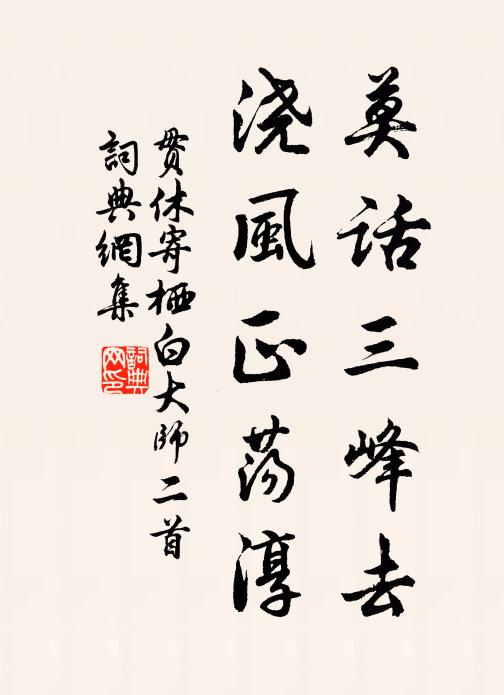 莫话三峰去
浇風正荡淳
贯休寄栖白大師二首
詞典網集
詞典网印